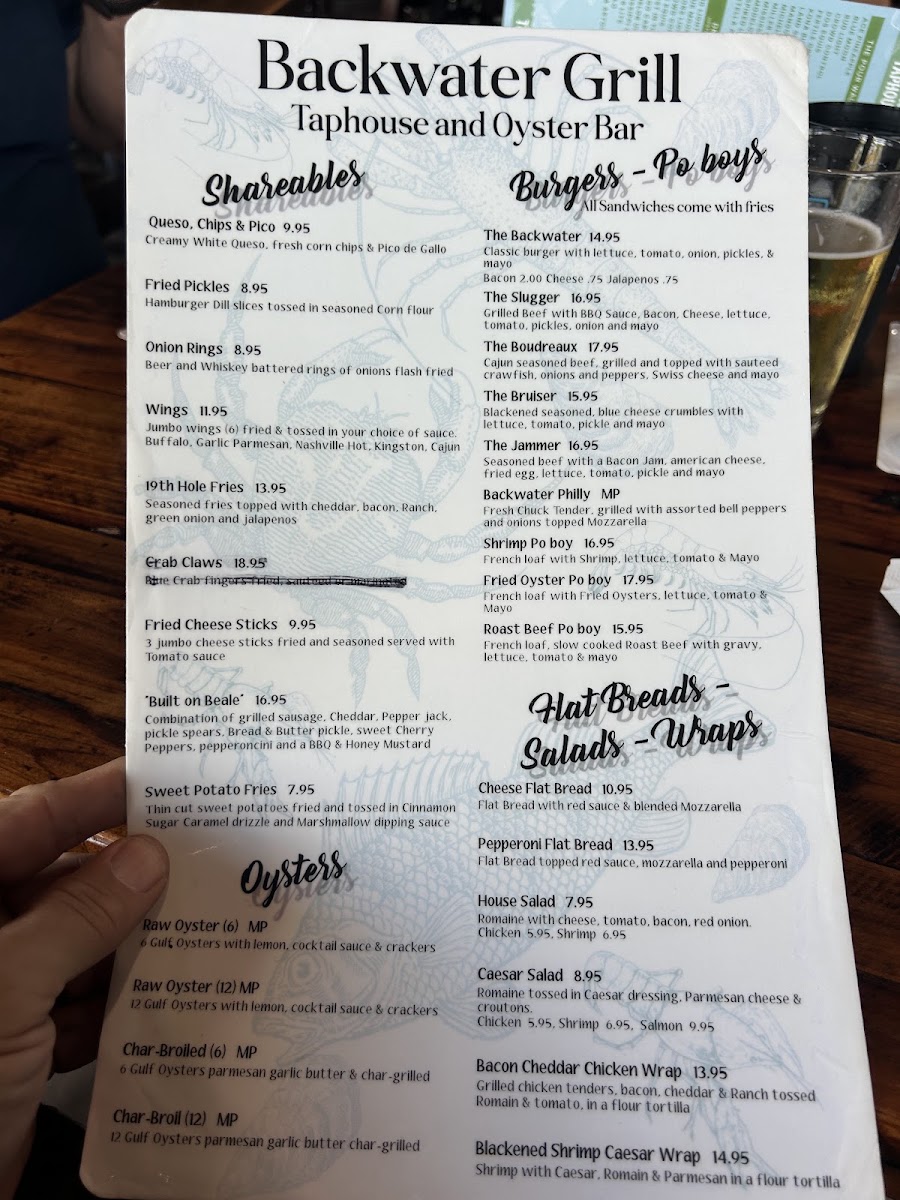 Backwater Grill
Taphouse and Oyster Bar
Shareables
Queso, Chips & Pico 9.95
Creamy White Queso, fresh corn chips & Pico de Gallo
Fried Pickles 8.95
Hamburger Dill slices tossed in seasoned Corn flour
Onion Rings 8.95
Beer and Whiskey battered rings of onions flash fried
Wings 11.95
Jumbo wings (6) fried & tossed in your choice of sauce.
Buffalo, Garlic Parmesan, Nashville Hot, Kingston, Cajun
19th Hole Fries 13.95
Seasoned fries topped with cheddar, bacon, Ranch,
green onion and jalapenos
Crab Claws 18.95
Blue Crab fingers fried, sauteed or marinated
Fried Cheese Sticks 9.95
3 jumbo cheese sticks fried and seasoned served with
Tomato sauce
"Built on Beale" 16.95
Combination of grilled sausage, Cheddar, Pepper jack,
pickle spears, Bread & Butter pickle, sweet Cherry
Peppers, pepperoncini and a BBQ & Honey Mustard
Sweet Potato Fries 7.95
Thin cut sweet potatoes fried and tossed in Cinnamon
Sugar Caramel drizzle and Marshmallow dipping sauce
Oysters
Raw Oyster (6) MP
6 Gulf Oysters with lemon, cocktail sauce & crackers
Raw Oyster (12) MP
12 Gulf Oysters with lemon, cocktail sauce & crackers
Char-Broiled (6) MP
6 Gulf Oysters parmesan garlic butter & char-grilled
Char-Broil (12) MP
12 Gulf Oysters parmesan garlic butter char-grilled
Burgers - Po boys
All Sandwiches come with fries
The Backwater 14.95
Classic burger with lettuce, tomato, onion, pickles, &
mayo
Bacon 2.00 Cheese .75 Jalapenos .75
The Slugger 16.95
Grilled Beef with BBQ Sauce, Bacon, Cheese, lettuce,
tomato, pickles, onion and mayo
The Boudreaux 17.95
Cajun seasoned beef, grilled and topped with sauteed
crawfish, onions and peppers, Swiss cheese and mayo
The Bruiser 15.95
Blackened seasoned, blue cheese crumbles with
lettuce, tomato, pickle and mayo
The Jammer 16.95
Seasoned beef with a Bacon Jam, american cheese,
fried egg, lettuce, tomato, pickle and mayo
Backwater Philly MP
Fresh Chuck Tender, grilled with assorted bell peppers
and onions topped Mozzarella
Shrimp Po boy 16.95
French loaf with Shrimp, lettuce, tomato & Mayo
Fried Oyster Po boy 17.95
French loaf with Fried Oysters, lettuce, tomato &
Mayo
Roast Beef Po boy 15.95
French loaf, slow cooked Roast Beef with gravy,
lettuce, tomato & mayo
Flat Breads -
Salads - Wraps
Cheese Flat Bread 10.95
Flat Bread with red sauce & blended Mozzarella
Pepperoni Flat Bread 13.95
Flat Bread topped red sauce, mozzarella and pepperoni
House Salad 7.95
Romaine with cheese, tomato, bacon, red onion.
Chicken 5.95, Shrimp 6.95
Caesar Salad 8.95
Romaine tossed in Caesar dressing, Parmesan cheese &
croutons.
Chicken 5.95, Shrimp 6.95, Salmon 9.95
Bacon Cheddar Chicken Wrap 13.95
Grilled chicken tenders, bacon, cheddar & Ranch tossed
Romain & tomato, in a flour tortilla
Blackened Shrimp Caesar Wrap 14.95
Shrimp with Caesar, Romain & Parmesan in a flour tortilla